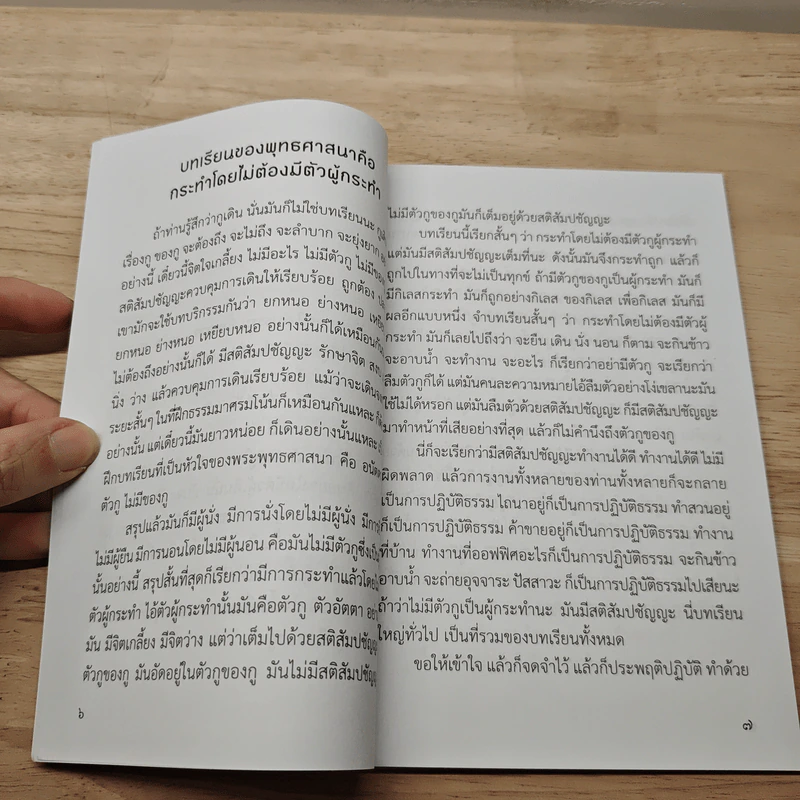 บทเรียนของพุทธศาสนาคือ
กระทำโดยไม่ต้องมีตัวผู้กระทำ
ถ้าท่านรู้สึกว่ากูเดิน นั่นมันก็ไม่ใช่บทเรียนนะ
เรื่องกู ของกู จะต้องถึง จะไม่ถึง จะลำบาก จะยุ่งยาก
อย่างนี้ เดี๋ยวนี้จิตใจเกลี้ยง ไม่มีอะไร ไม่มีตัวกู
สติสัมปชัญญะควบคุมการเดินให้เรียบร้อย ถูกต้อง
เขามักจะใช้บทบริกรรมกันว่า ยกหนอ ย่างหนอ
ยกหนอ ย่างหนอ เหยียบหนอ อย่างนั้นก็ได้เหมือนกัน
ไม่ต้องถึงอย่างนั้นก็ได้ มีสติสัมปชัญญะ รักษาจิต
นิ่ง ว่าง แล้วควบคุมการเดินเรียบร้อย แม้ว่าจะเดิน
ระยะสั้นๆ ในที่ฝึกธรรมมาศรมโน้นก็เหมือนกันแหละ
อย่างนั้น แต่เดี๋ยวนี้มันยาวหน่อย ก็เดินอย่างนั้นแหละ
ฝึกบทเรียนที่เป็นหัวใจของพระพุทธศาสนา คือ
ตัวกู ไม่มีของกู
สรุปแล้วมันก็มีผู้นั่ง มีการนั่งโดยไม่มีผู้นั่ง
ไม่มีผู้ยืน มีการนอนโดยไม่มีผู้นอน คือมันไม่มีตัวกูซึ่งเป็น
นั้นอย่างนี้ สรุปสั้นที่สุดก็เรียกว่ามีการกระทำแล้วโดย
ตัวผู้กระทำ ไอ้ตัวผู้กระทำนั้นมันคือตัวกู ตัวอัตตา
มัน มีจิตเกลี้ยง มีจิตว่าง แต่ว่าเต็มไปด้วยสติสัมปชัญญะ
ตัวกูของกู มันอัดอยู่ในตัวกูของกู มันไม่มีสติสัมปชัญญะ
๖
ไม่มีตัวกูของกูมันก็เต็มอยู่ด้วยสติสัมปชัญญะ
บทเรียนนี้เรียกสั้นๆ ว่า กระทำโดยไม่ต้องมีตัวกูผู้กระทำ
แต่มันมีสติสัมปชัญญะเต็มที่นะ ดังนั้นมันจึงกระทำถูก แล้วก็
ถูกไปในทางที่จะไม่เป็นทุกข์ ถ้ามีตัวกูของกูเป็นผู้กระทำ มันก็
มีกิเลสกระทำ มันก็ถูกอย่างกิเลส ของกิเลส เพื่อกิเลส มันก็มี
ผลอีกแบบหนึ่ง จำบทเรียนสั้นๆ ว่า กระทำโดยไม่ต้องมีตัวผู้
กระทำ มันก็เลยไปถึงว่า จะยืน เดิน นั่ง นอน ก็ตาม จะกินข้าว
จะอาบน้ำ จะทำงาน จะอะไร ก็เรียกว่าอย่ามีตัวกู จะเรียกว่า
ลืมตัวกูก็ได้ แต่มันคนละความหมายไอ้ลืมตัวอย่างโง่เขลานะมัน
ใช้ไม่ได้หรอก แต่มันลืมตัวด้วยสติสัมปชัญญะ ก็มีสติสัมปชัญญะ
มาทำหน้าที่เสียอย่างที่สุด แล้วก็ไม่คำนึงถึงตัวกูของกู
นี่ก็จะเรียกว่ามีสติสัมปชัญญะทำงานได้ดี ทำงานได้ดี ไม่มี
ผิดพลาด แล้วการงานทั้งหลายของท่านทั้งหลายก็จะกลาย
เป็นการปฏิบัติธรรม ไถนาอยู่ก็เป็นการปฏิบัติธรรม ทำสวนอยู่
ก็เป็นการปฏิบัติธรรม ค้าขายอยู่ก็เป็นการปฏิบัติธรรม ทำงาน
ที่บ้าน ทำงานที่ออฟฟิศอะไรก็เป็นการปฏิบัติธรรม จะกินข้าว
อาบน้ำ จะถ่ายอุจจาระ ปัสสาวะ ก็เป็นการปฏิบัติธรรมไปเสียนะ
ถ้าว่าไม่มีตัวกูเป็นผู้กระทำนะ มันมีสติสัมปชัญญะ นี่บทเรียน
ใหญ่ทั่วไป เป็นที่รวมของบทเรียนทั้งหมด
ขอให้เข้าใจ แล้วก็จดจำไว้ แล้วก็ประพฤติปฏิบัติ ทำด้วย
๗